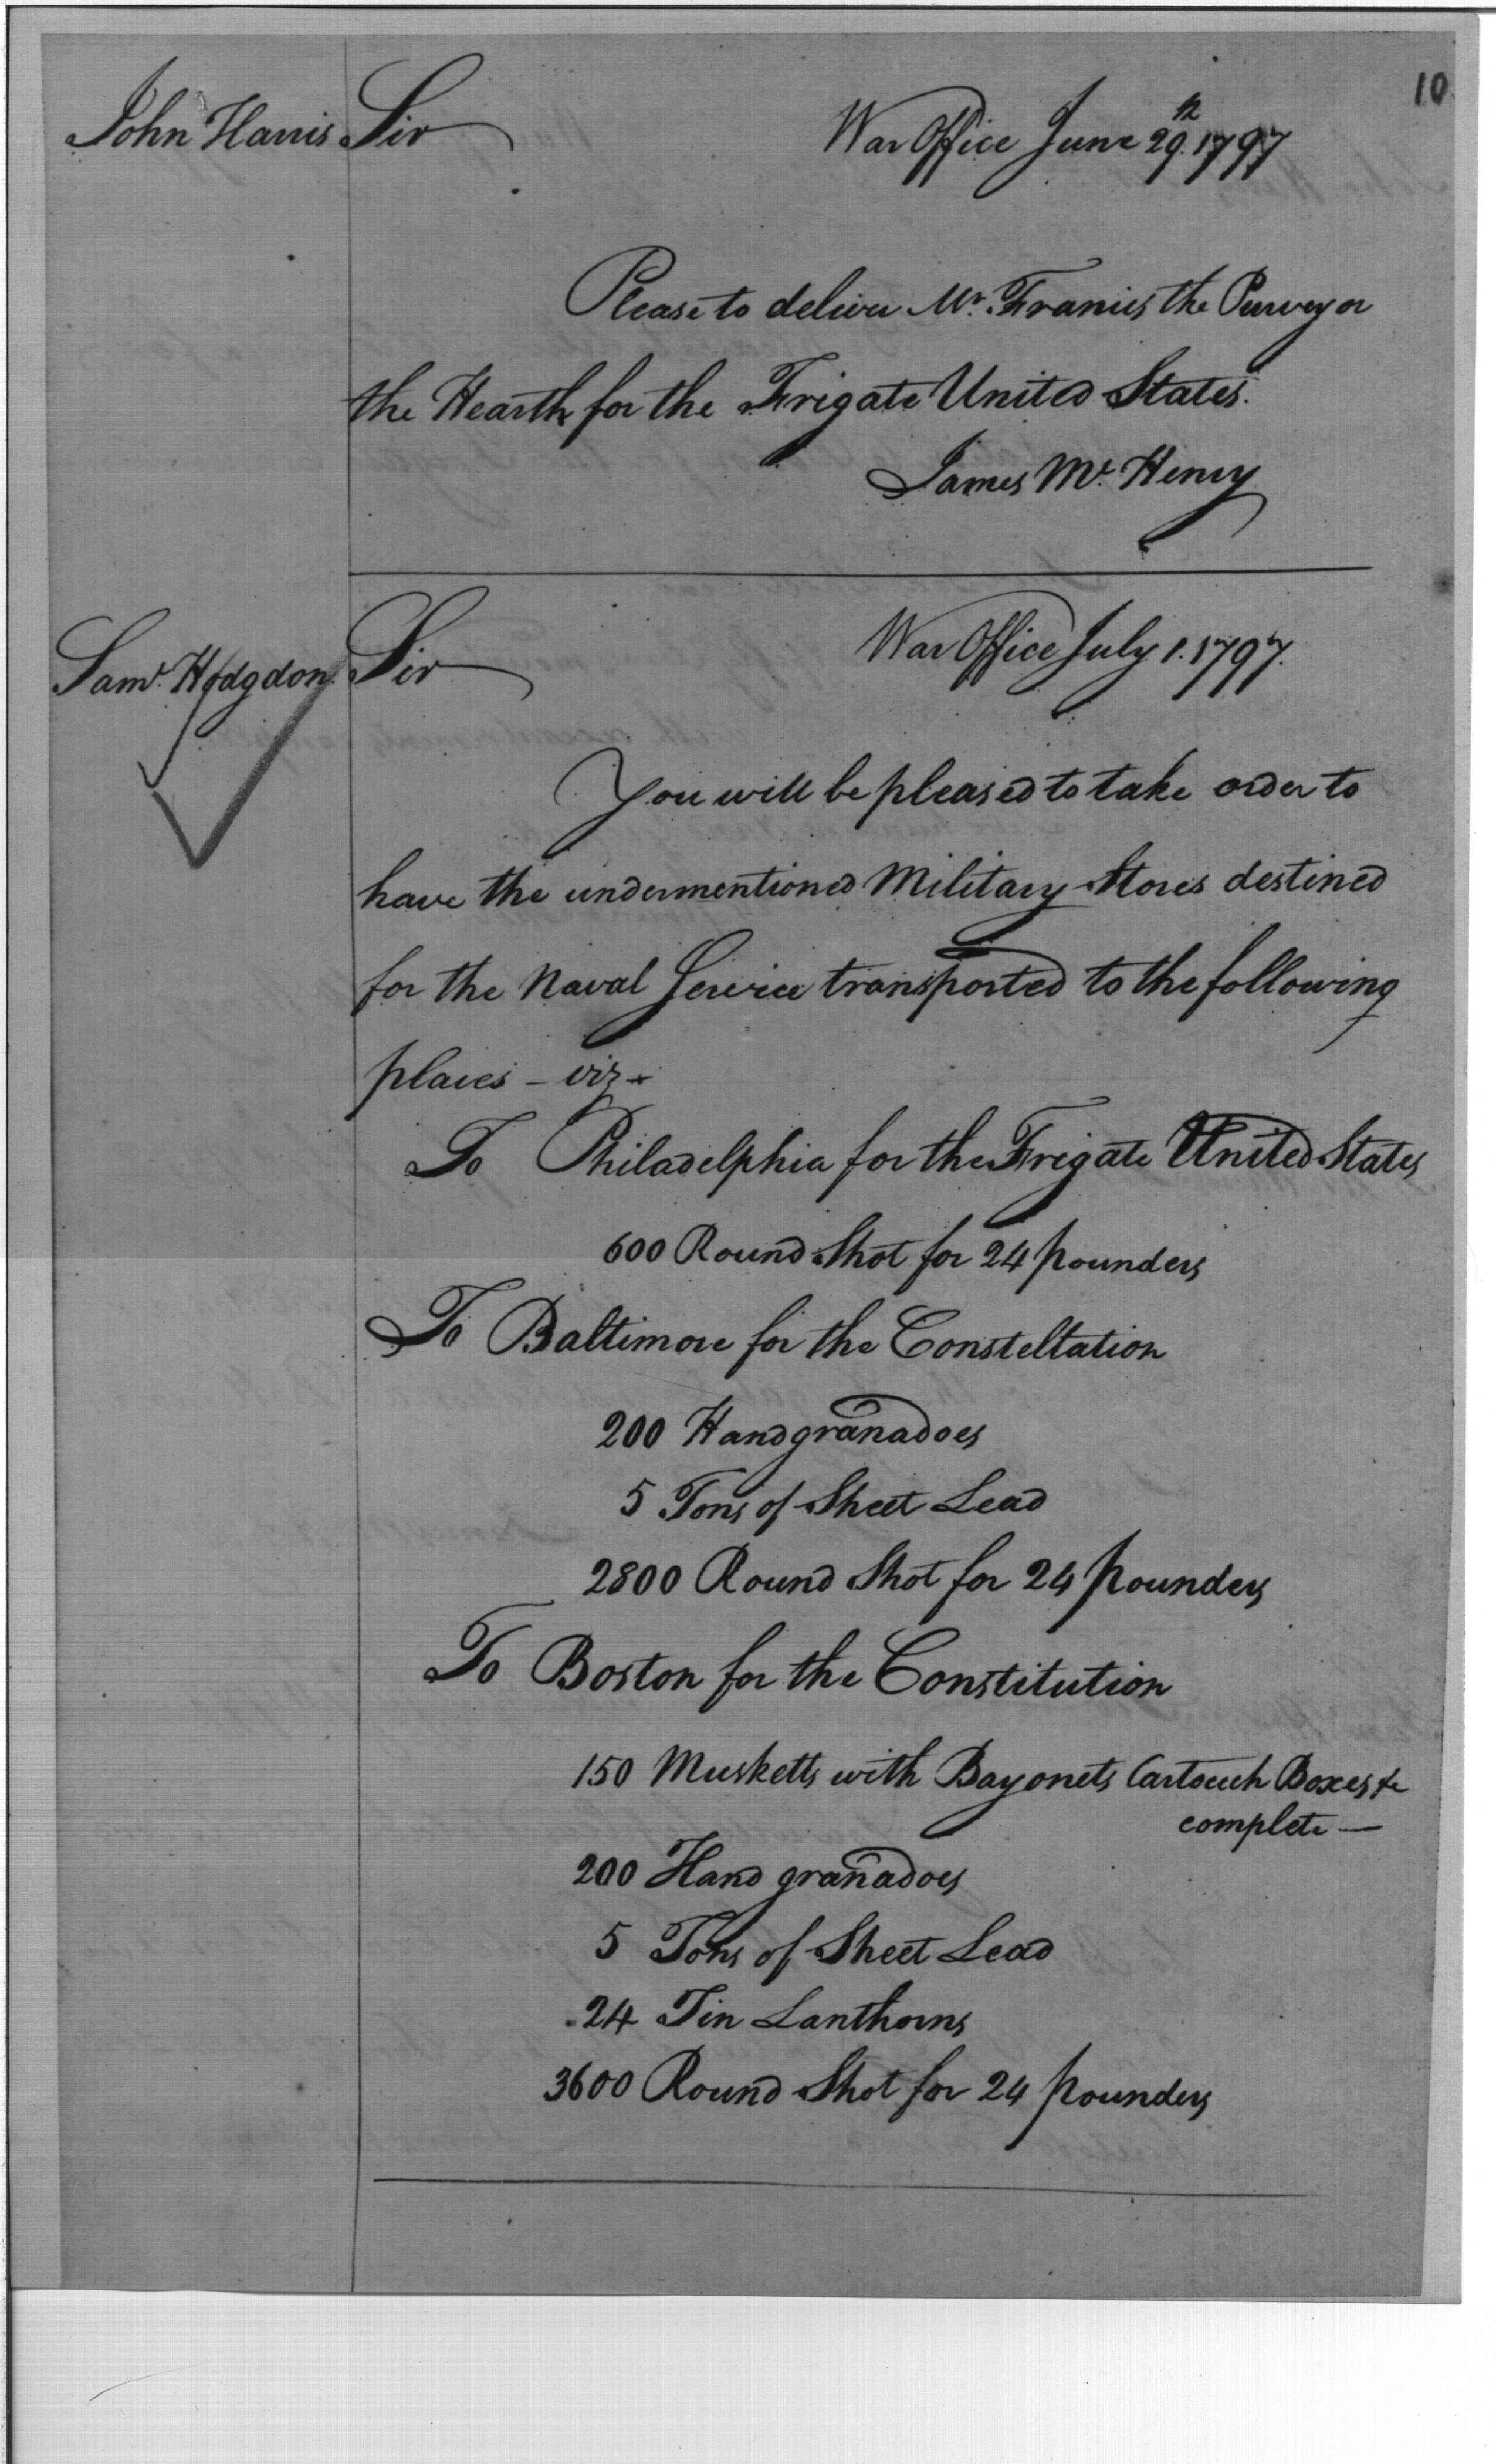 10
John Harris
Sir
War Office June 29th. 1797
Please to deliver Mr. Francis the Purveyor
the Hearth for the Frigate United States.
James McHenry
Saml. Hodgdon.
Sir
War Office July 1. 1797.
You will be pleased to take order to
have the undermentioned Military Stores destined
for the Naval Service transported to the following
places - viz -
To Philadelphia for the Frigate United States
600 Round Shot for 24 pounders
To Baltimore for the Constellation
200 Handgranadoes
5 Tons of Sheet Lead
2800 Round Shot for 24 pounders
To Boston for the Constitution
150 Musketts with Bayonets Cartouch Boxes &c
complete —
200 Hand granadoes
5 Tons of Sheet Lead
24 Tin Lanthorns
3600 Round Shot for 24 pounders